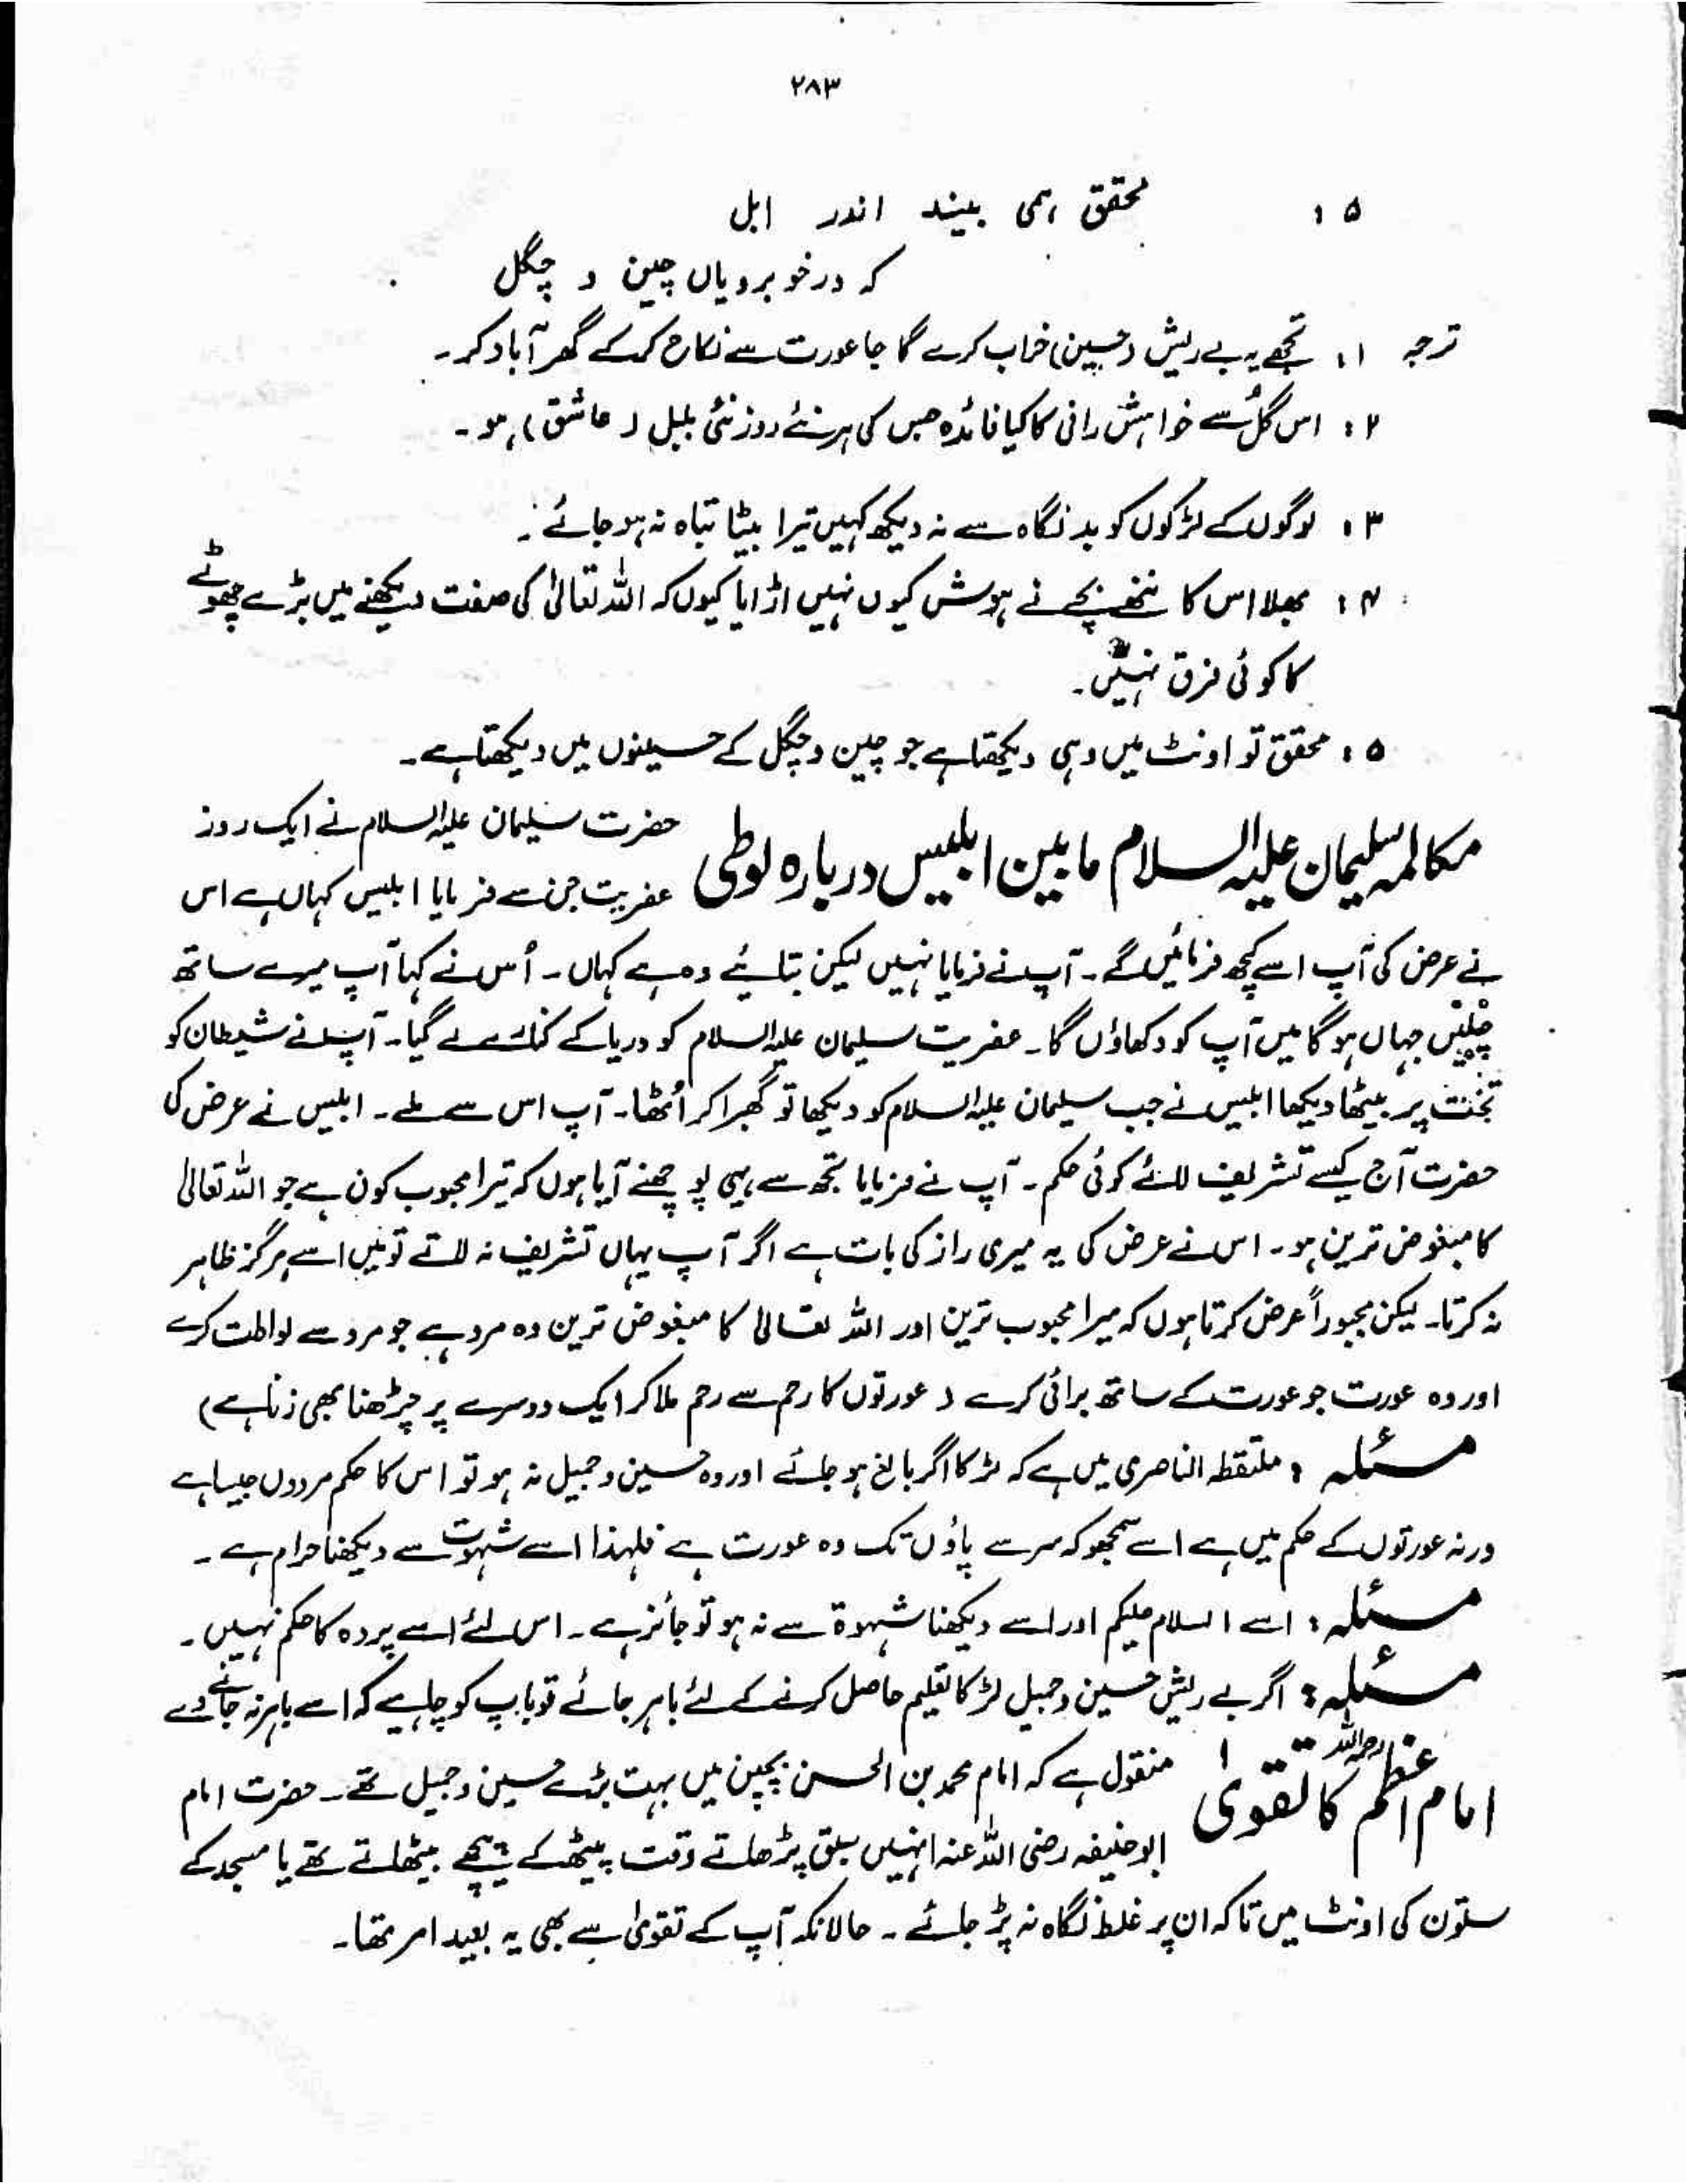 ۲۸۳
۵ : محقق ہمی بیند اندر ابل
کہ در خوبرویاں چین و چگل
ترجمہ ۱: تجھے یہ بے ریش (حسین) خراب کرے گا جا عورت سے نکاح کرکے گھر آباد کر۔
۲: اس گُل سے خواہش رانی کا کیا فائدہ جس کی ہر نئے روز نئی بلبل (عاشق) ہو۔
۳: لوگوں کے لڑکوں کو بدنگاہ سے نہ دیکھ کہیں تیرا بیٹا تباہ نہ ہو جائے۔
۴: بھلا اس کا ننھے بچے نے ہوش کیوں نہیں اڑایا کیوں کہ اللہ تعالیٰ کی صفت دیکھنے میں بڑے چھوٹے
کا کوئی فرق نہیں۔
۵: محقق تو اونٹ میں وہی دیکھتا ہے جو چین و چگل کے حسینوں میں دیکھتا ہے۔
مکالمہ سلیمان علیہ السلام مابین ابلیس دربارہ لوطی
حضرت سلیمان علیہ السلام نے ایک روز
عفریت جن سے فرمایا ابلیس کہاں ہے اس
نے عرض کی آپ اسے کچھ فرمائیں گے۔ آپ نے فرمایا نہیں لیکن بتائیے وہ ہے کہاں۔ اُس نے کہا آپ میرے ساتھ
چلیں جہاں ہوگا میں آپ کو دکھاؤں گا۔ عفریت سلیمان علیہ السلام کو دریا کے کنارے لے گیا۔ آپ نے شیطان کو
تخت پر بیٹھا دیکھا ابلیس نے جب سلیمان علیہ السلام کو دیکھا تو گھبرا کر اُٹھا۔ آپ اس سے ملے۔ ابلیس نے عرض کی
حضرت آج کیسے تشریف لائے کوئی حکم۔ آپ نے فرمایا تجھ سے یہی پوچھنے آیا ہوں کہ تیرا محبوب کون ہے جو اللہ تعالیٰ
کا مبغوض ترین ہو۔ اس نے عرض کی یہ میری راز کی بات ہے اگر آپ یہاں تشریف نہ لاتے تو میں اسے ہرگز ظاہر
نہ کرتا۔ لیکن مجبوراً عرض کرتا ہوں کہ میرا محبوب ترین اور اللہ تعالیٰ کا مبغوض ترین وہ مرد ہے جو مرد سے لواطت کرے
اور وہ عورت جو عورت کے ساتھ برائی کرے (عورتوں کا رحم سے رحم ملا کر ایک دوسرے پر چڑھنا بھی زنا ہے)
مسئلہ : ملتقطہ الناصری میں ہے کہ لڑکا اگر بالغ ہو جائے اور وہ حسین و جمیل نہ ہو تو اس کا حکم مردوں جیسا ہے
ورنہ عورتوں کے حکم میں ہے اسے سمجھو کہ سر سے پاؤں تک وہ عورت ہے فلہذا اسے شہوت سے دیکھنا حرام ہے۔
مسئلہ : اسے السلام علیکم اور اسے دیکھنا شہوۃ سے نہ ہو تو جائز ہے۔ اس لئے اسے پردہ کا حکم نہیں۔
مسئلہ : اگر بے ریش حسین و جمیل لڑکا تعلیم حاصل کرنے کے لئے باہر جائے تو باپ کو چاہیے کہ اسے باہر نہ جانے دے
امام اعظم رحمہ اللہ کا تقویٰ
منقول ہے کہ امام محمد بن الحسن بچپن میں بہت بڑے حسین و جمیل تھے۔ حضرت امام
ابوحنیفہ رضی اللہ عنہ انہیں سبق پڑھاتے وقت پیٹھ کے پیچھے بیٹھاتے تھے یا مسجد کے
ستون کی اونٹ میں تاکہ ان پر غلط نگاہ نہ پڑ جائے۔ حالانکہ آپ کے تقویٰ سے بھی یہ بعید امر تھا۔